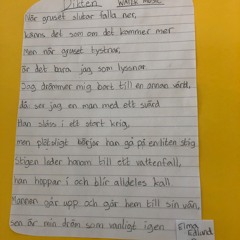 Dikten WATER MUSIC
När gruset slutar falla ner,
känns det som om det kommer mer
Men när gruset tystnar,
är det bara jag som lyssnar.
Jag drömmer mig bort till en annan värld,
där ser jag en man med ett svärd
Han slåss i ett stort krig,
men plötsligt börjar han gå på en liten stig.
Stigen leder honom till ett vattenfall,
han hoppar i och blir alldeles kall
Mannen går upp och går hem till sin vän,
sen är min dröm som vanligt igen.
Elma
Edlund